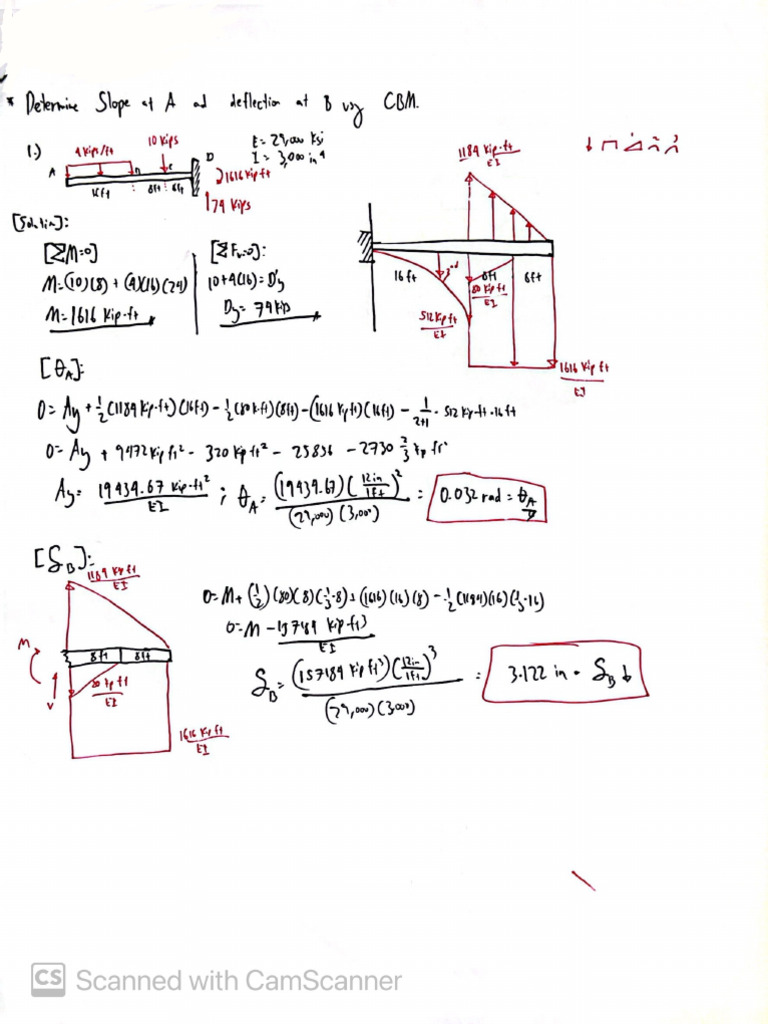 * Determine Slope at A and deflection at B using CBM.
1.)
4 kips/ft
10 kips
E = 29,000 ksi
I = 3,000 in⁴
A
B
C
D
1616 kip ft
74 kips
16 ft
8ft
[Solution]:
[ΣM=0]
M=(10)(8) + (4)(16)(24)
M=1616 kip-ft
[ΣFv=0]:
10+4(16)=Dy
Dy= 74 kip
1184 kip-ft
EI
16 ft
2nd
8ft
80 kip ft
EI
512 kip ft
EI
1616 kip ft
EI
[θA]:
0= Ay + 1/2 (1184 kip-ft)(16ft) - 1/2 (80 k-ft)(8ft) - (1616 kip ft)(16ft) - 1/(2+1) · 512 kip-ft · 16ft
0= Ay + 9472 kip ft² - 320 kip ft² - 25856 - 2730 2/3 kip ft²
Ay= 19434.67 kip-ft² / EI ; θA= (19434.67)(12in/1ft)² / (29,000)(3,000) = 0.032 rad = θA
[δB]:
1184 kip ft
EI
M
V
8ft
8ft
80 kip ft
EI
1616 kip ft
EI
0= M + (1/2)(80)(8)(1/3·8) + (1616)(16)(8) - 1/2 (1184)(16)(1/3·16)
0= M - 157184 kip ft³ / EI
δB= (157184 kip ft³)(12in/1ft)³ / (29,000)(3,000) = 3.122 in = δB ↓
CS Scanned with CamScanner